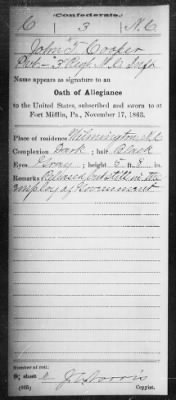 (Confederate.)
C 3 N.C.
John T. Cooper
Pvt – 3 Regt N.C. Inf.
Name appears as signature to an
Oath of Allegiance
to the United States, subscribed and sworn to at
Fort Mifflin, Pa., November 17, 1863.
Place of residence Wilmington N.C.
Complexion Dark; hair Black
Eyes Gray; height 5 ft. 8 in.
Remarks Released but still in the
employ of Government
Number of roll:
sheet
Copyist.